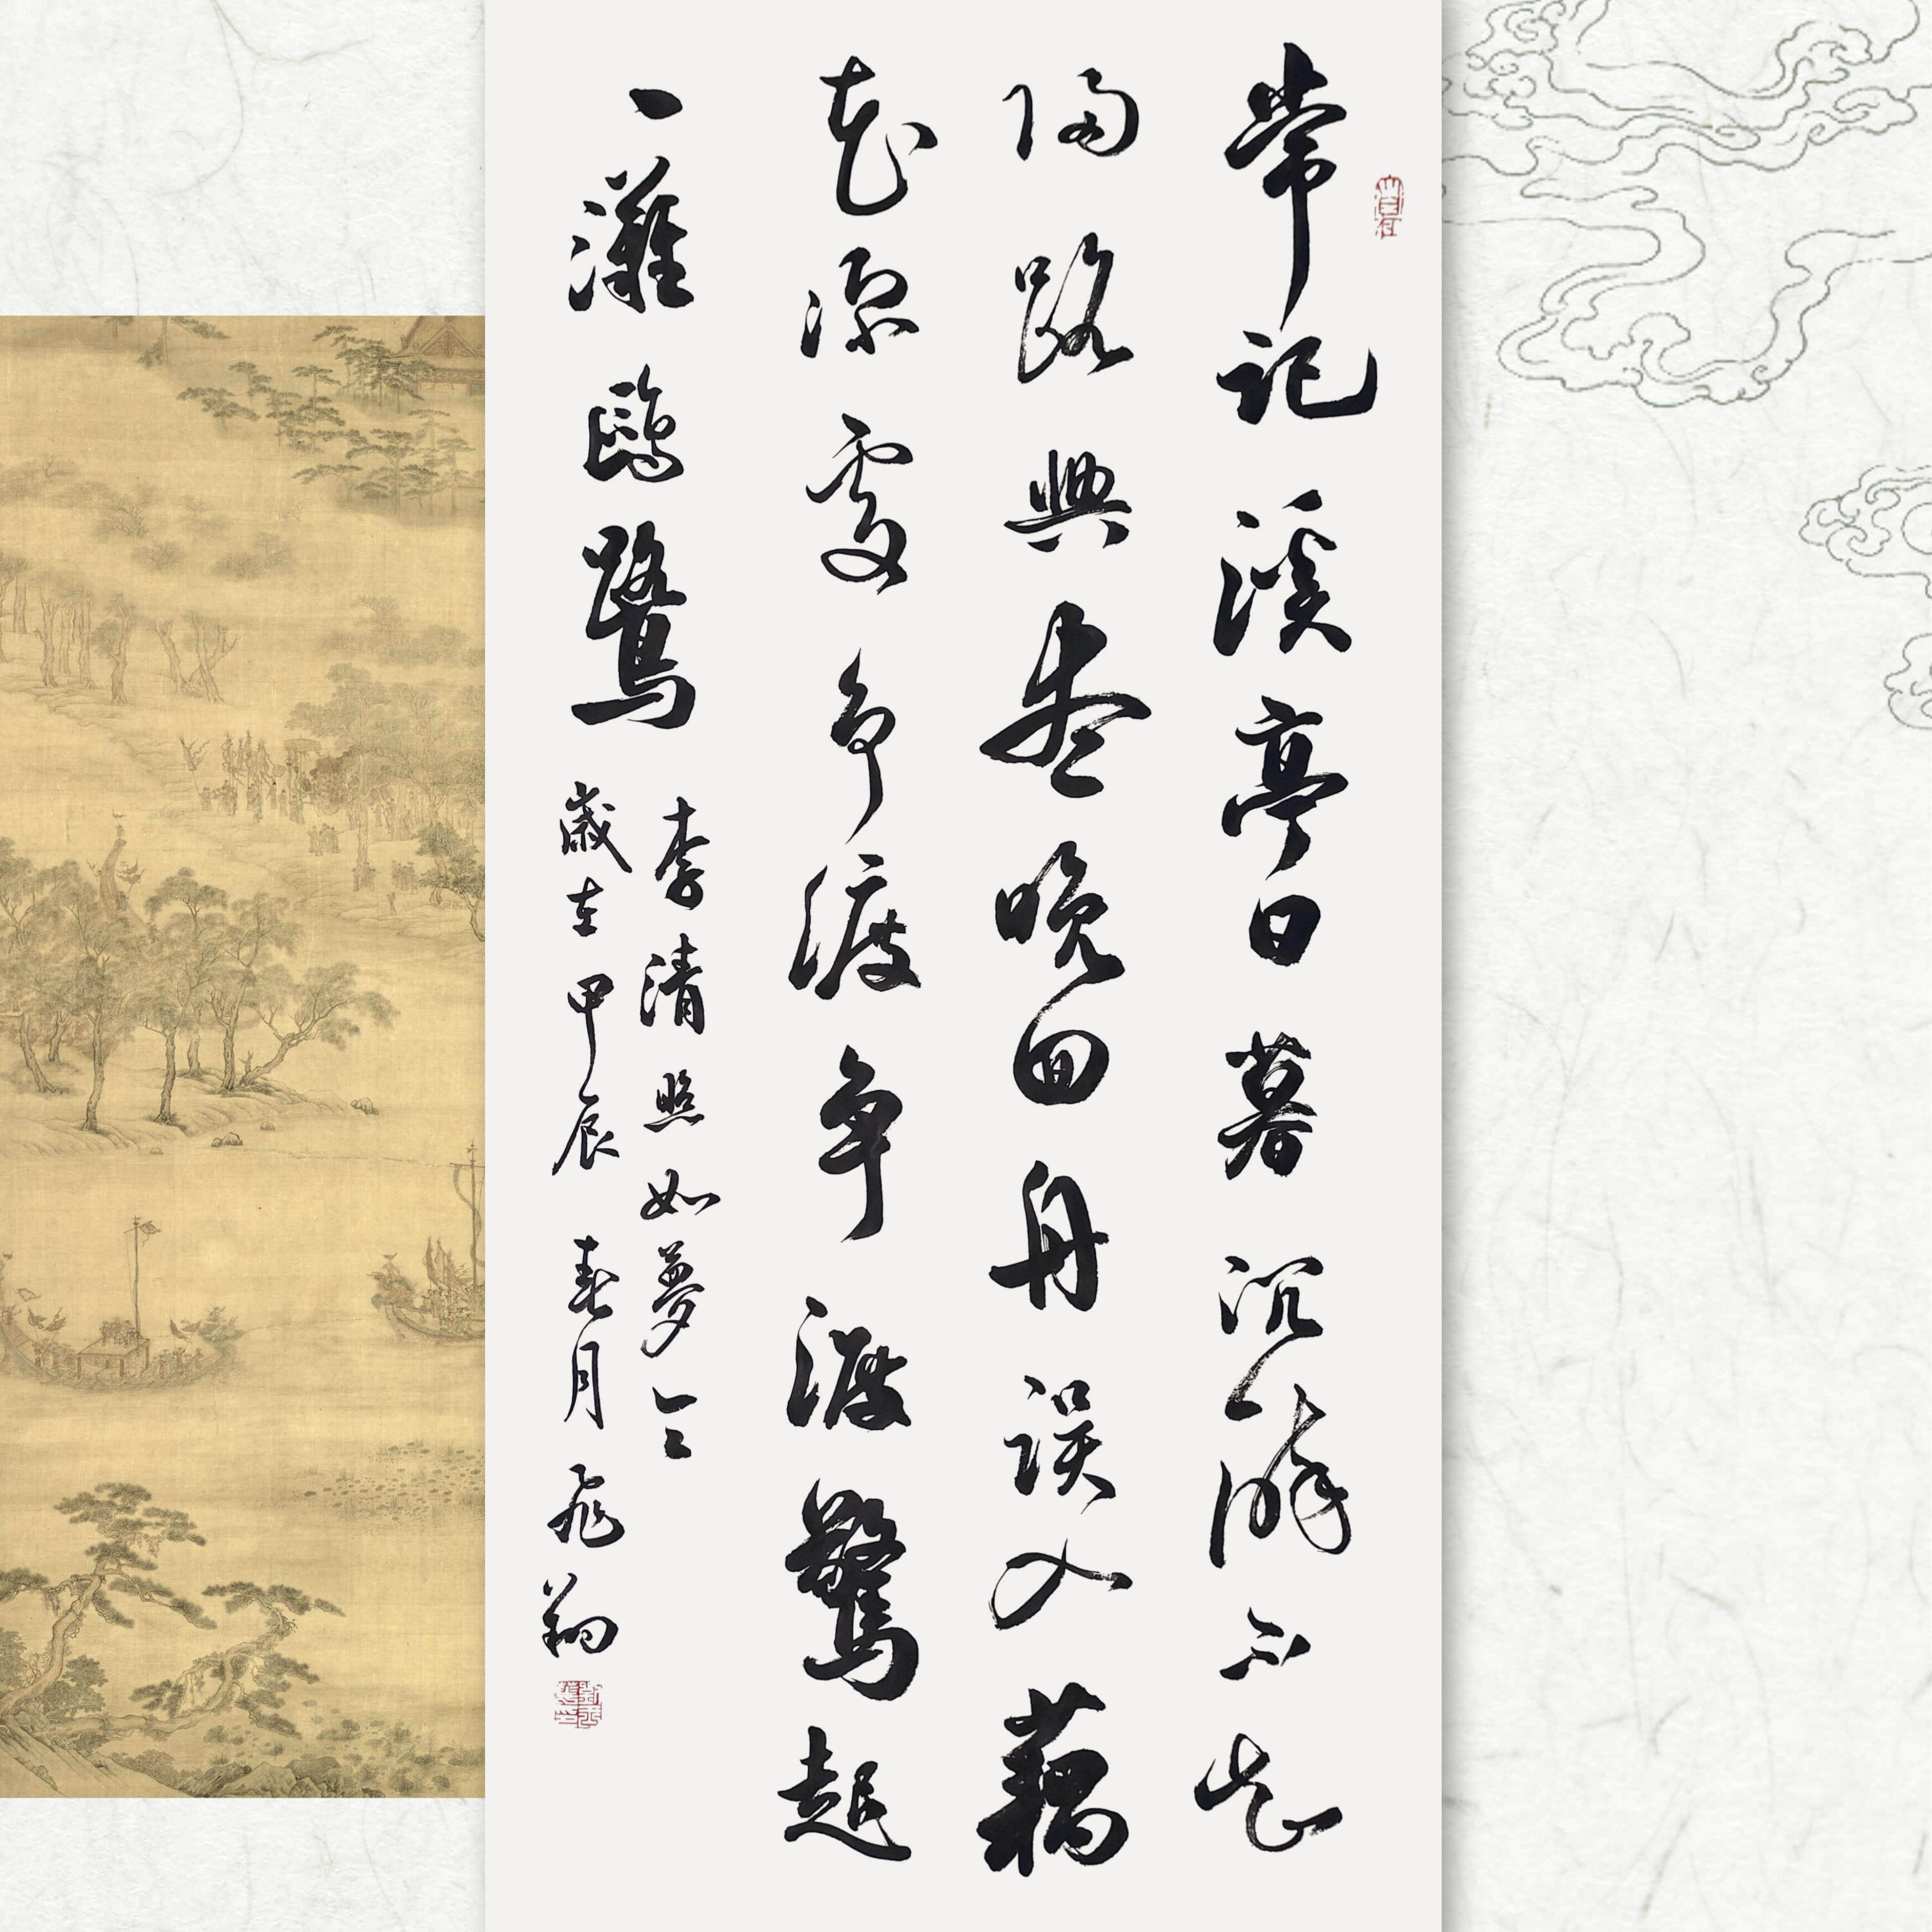 大自在
常記溪亭日暮沉醉不知
歸路興盡晚回舟誤入藕
花深處爭渡爭渡驚起
一灘鷗鷺
李清照如夢令
歲在甲辰春月飛翔